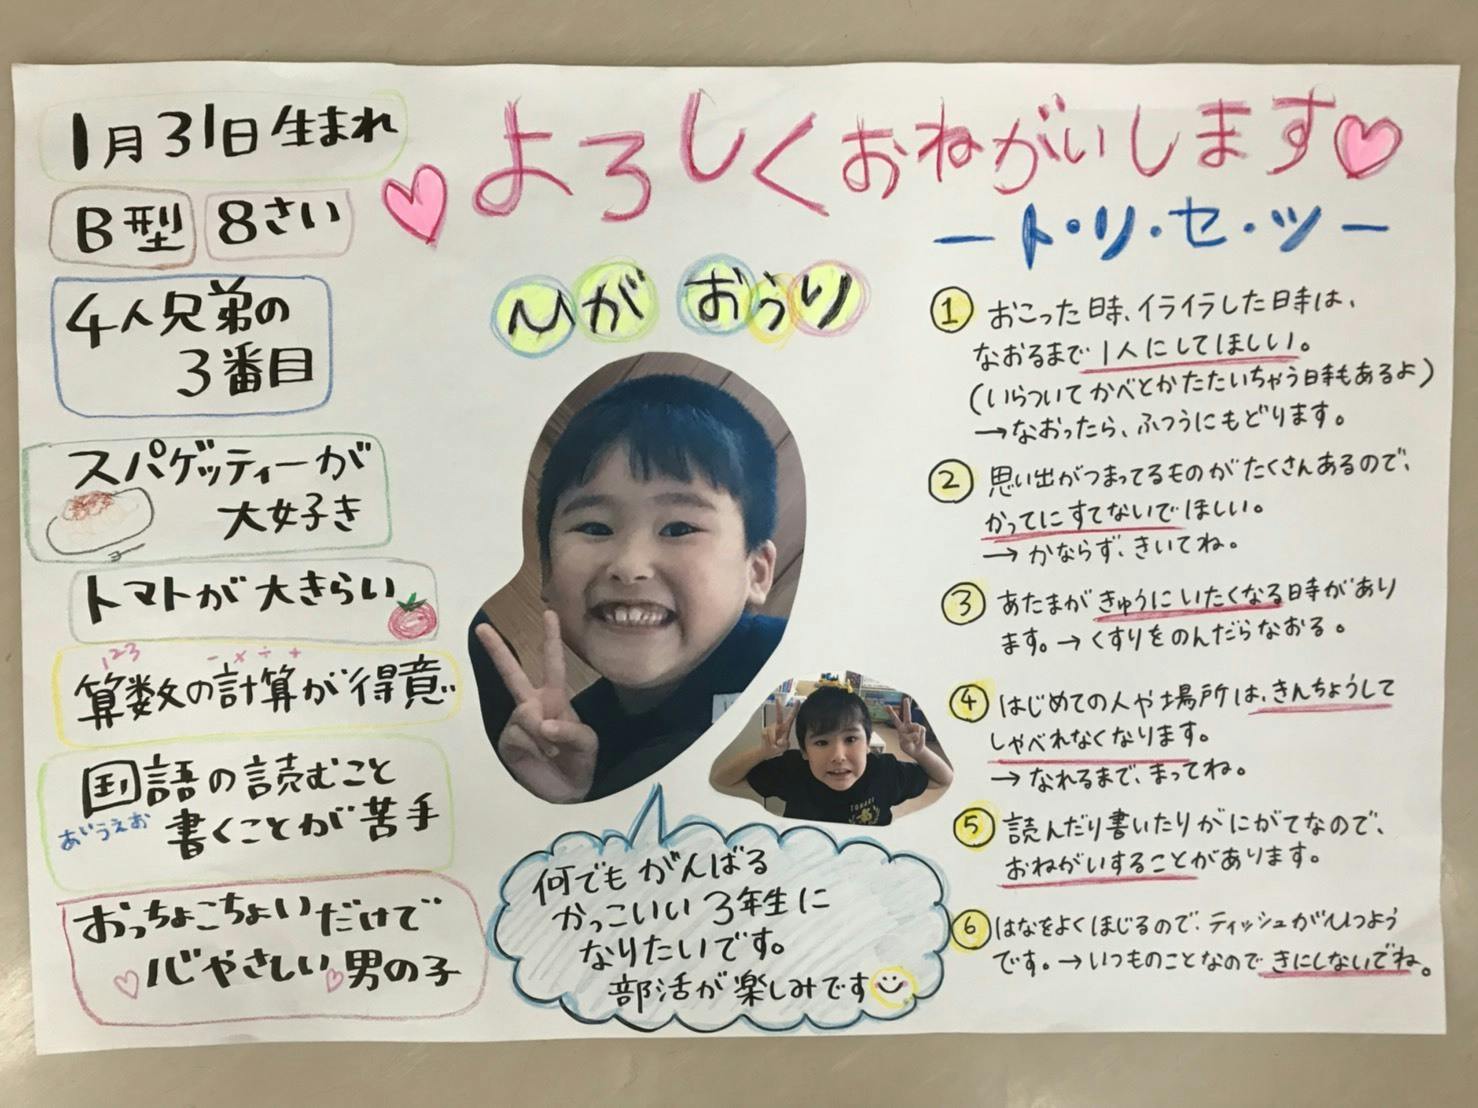 よろしくおねがいします
ートリ・セ・ツー
ひが おうり
1月31日生まれ
B型
8さい
4人兄弟の
3番目
スパゲッティーが
大好き
トマトが大きらい
123
- × ÷ +
算数の計算が得意
国語の読むこと
あいうえお
書くことが苦手
おっちょこちょいだけど
心やさしい男の子
何でもがんばる
かっこいい3年生に
なりたいです。
部活が楽しみです
① おこった時、イライラした時は、
なおるまで1人にしてほしい。
(いらついてかべとかたたいちゃう時もあるよ)
→なおったら、ふつうにもどります。
② 思い出がつまってるものがたくさんあるので、
かってにすてないでほしい。
→ かならず、きいてね。
③ あたまがきゅうにいたくなる時があり
ます。→くすりをのんだらなおる。
④ はじめての人や場所は、きんちょうして
しゃべれなくなります。
→ なれるまで、まってね。
⑤ 読んだり書いたりがにがてなので、
おねがいすることがあります。
⑥ はなをよくほじるので、ティッシュがひつよう
です。→いつものことなのできにしないでね。